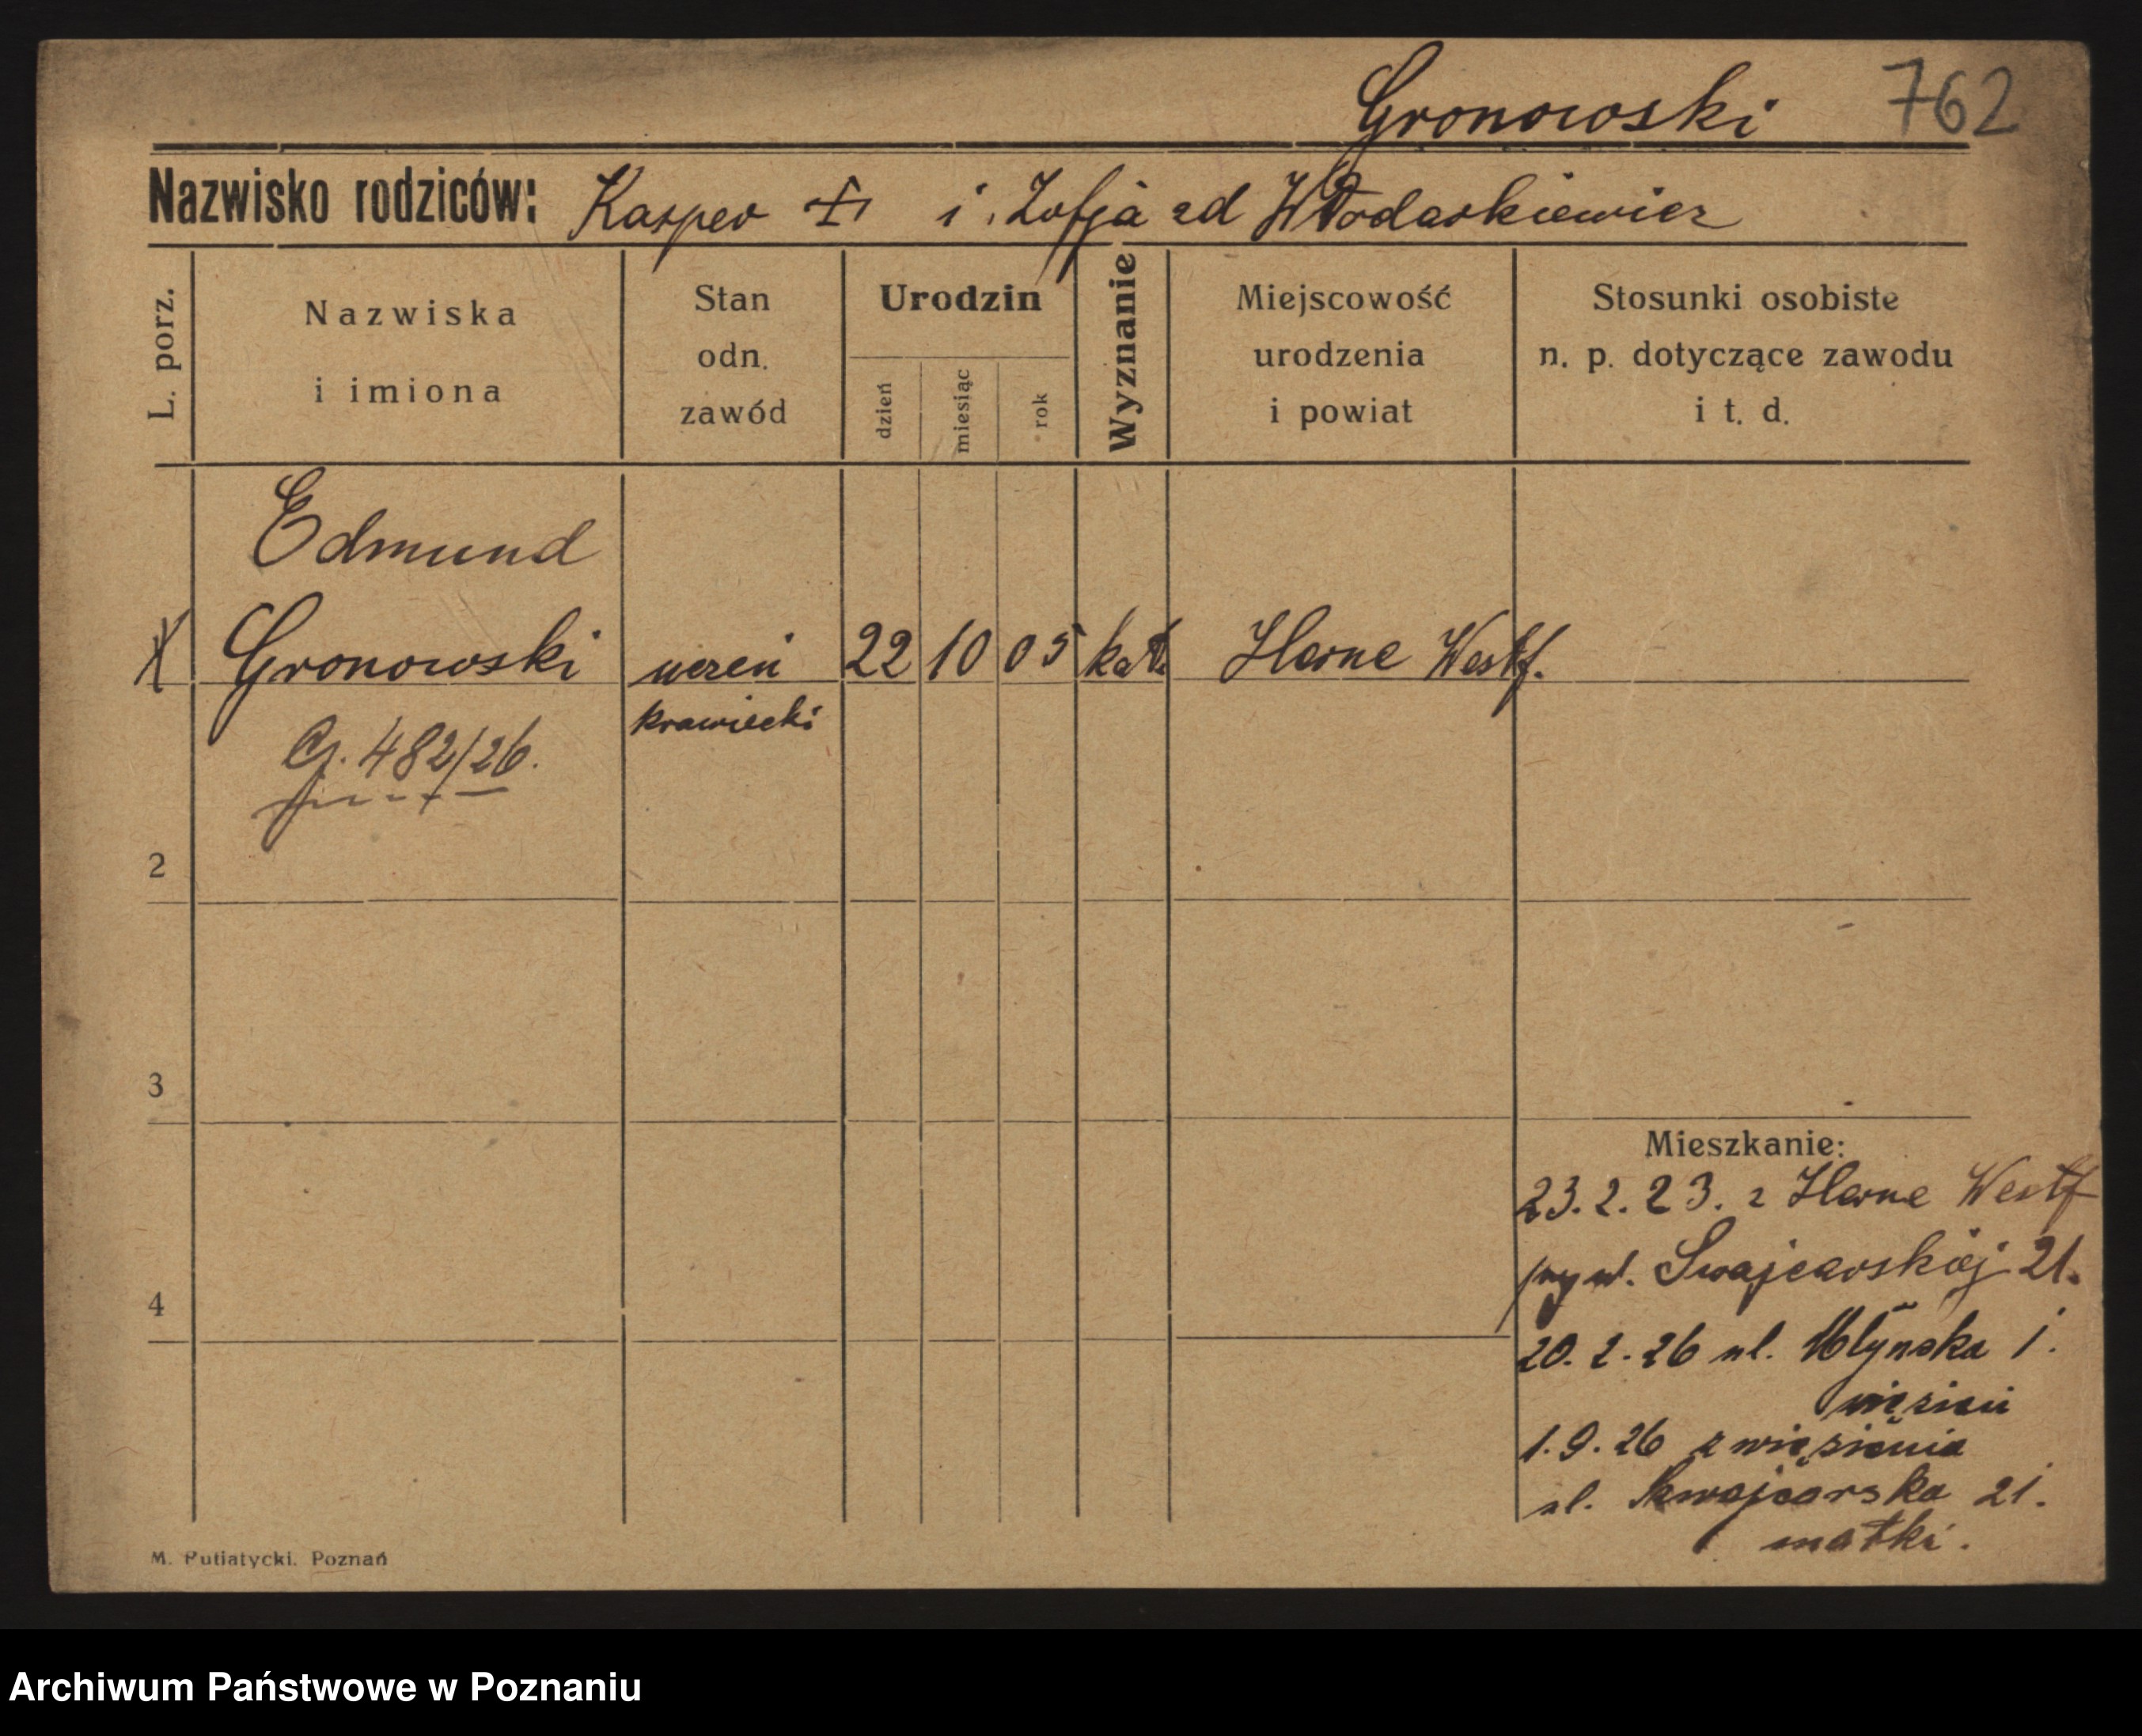 Gronowski 762
Nazwisko rodziców: Kasper + i Zofja zd Włodarkiewicz
L. porz.
Nazwiska
i imiona
Stan
odn.
zawód
Urodzin
dzień
miesiąc
rok
Wyznanie
Miejscowość
urodzenia
i powiat
Stosunki osobiste
n. p. dotyczące zawodu
i t. d.
Edmund
Gronowski uczeń 22 10 05 kat. Herne Westf.
krawiecki
G. 482/26.
2
3
4
Mieszkanie:
23.2.23. z Herne Westf
przy ul. Swajcarskiej 21.
20.2.26 ul. Młynska 1.
więzień
1.9.26 z więzienia
ul. Szwajcarska 21.
matki.
M. Putiatycki. Poznań
Archiwum Państwowe w Poznaniu